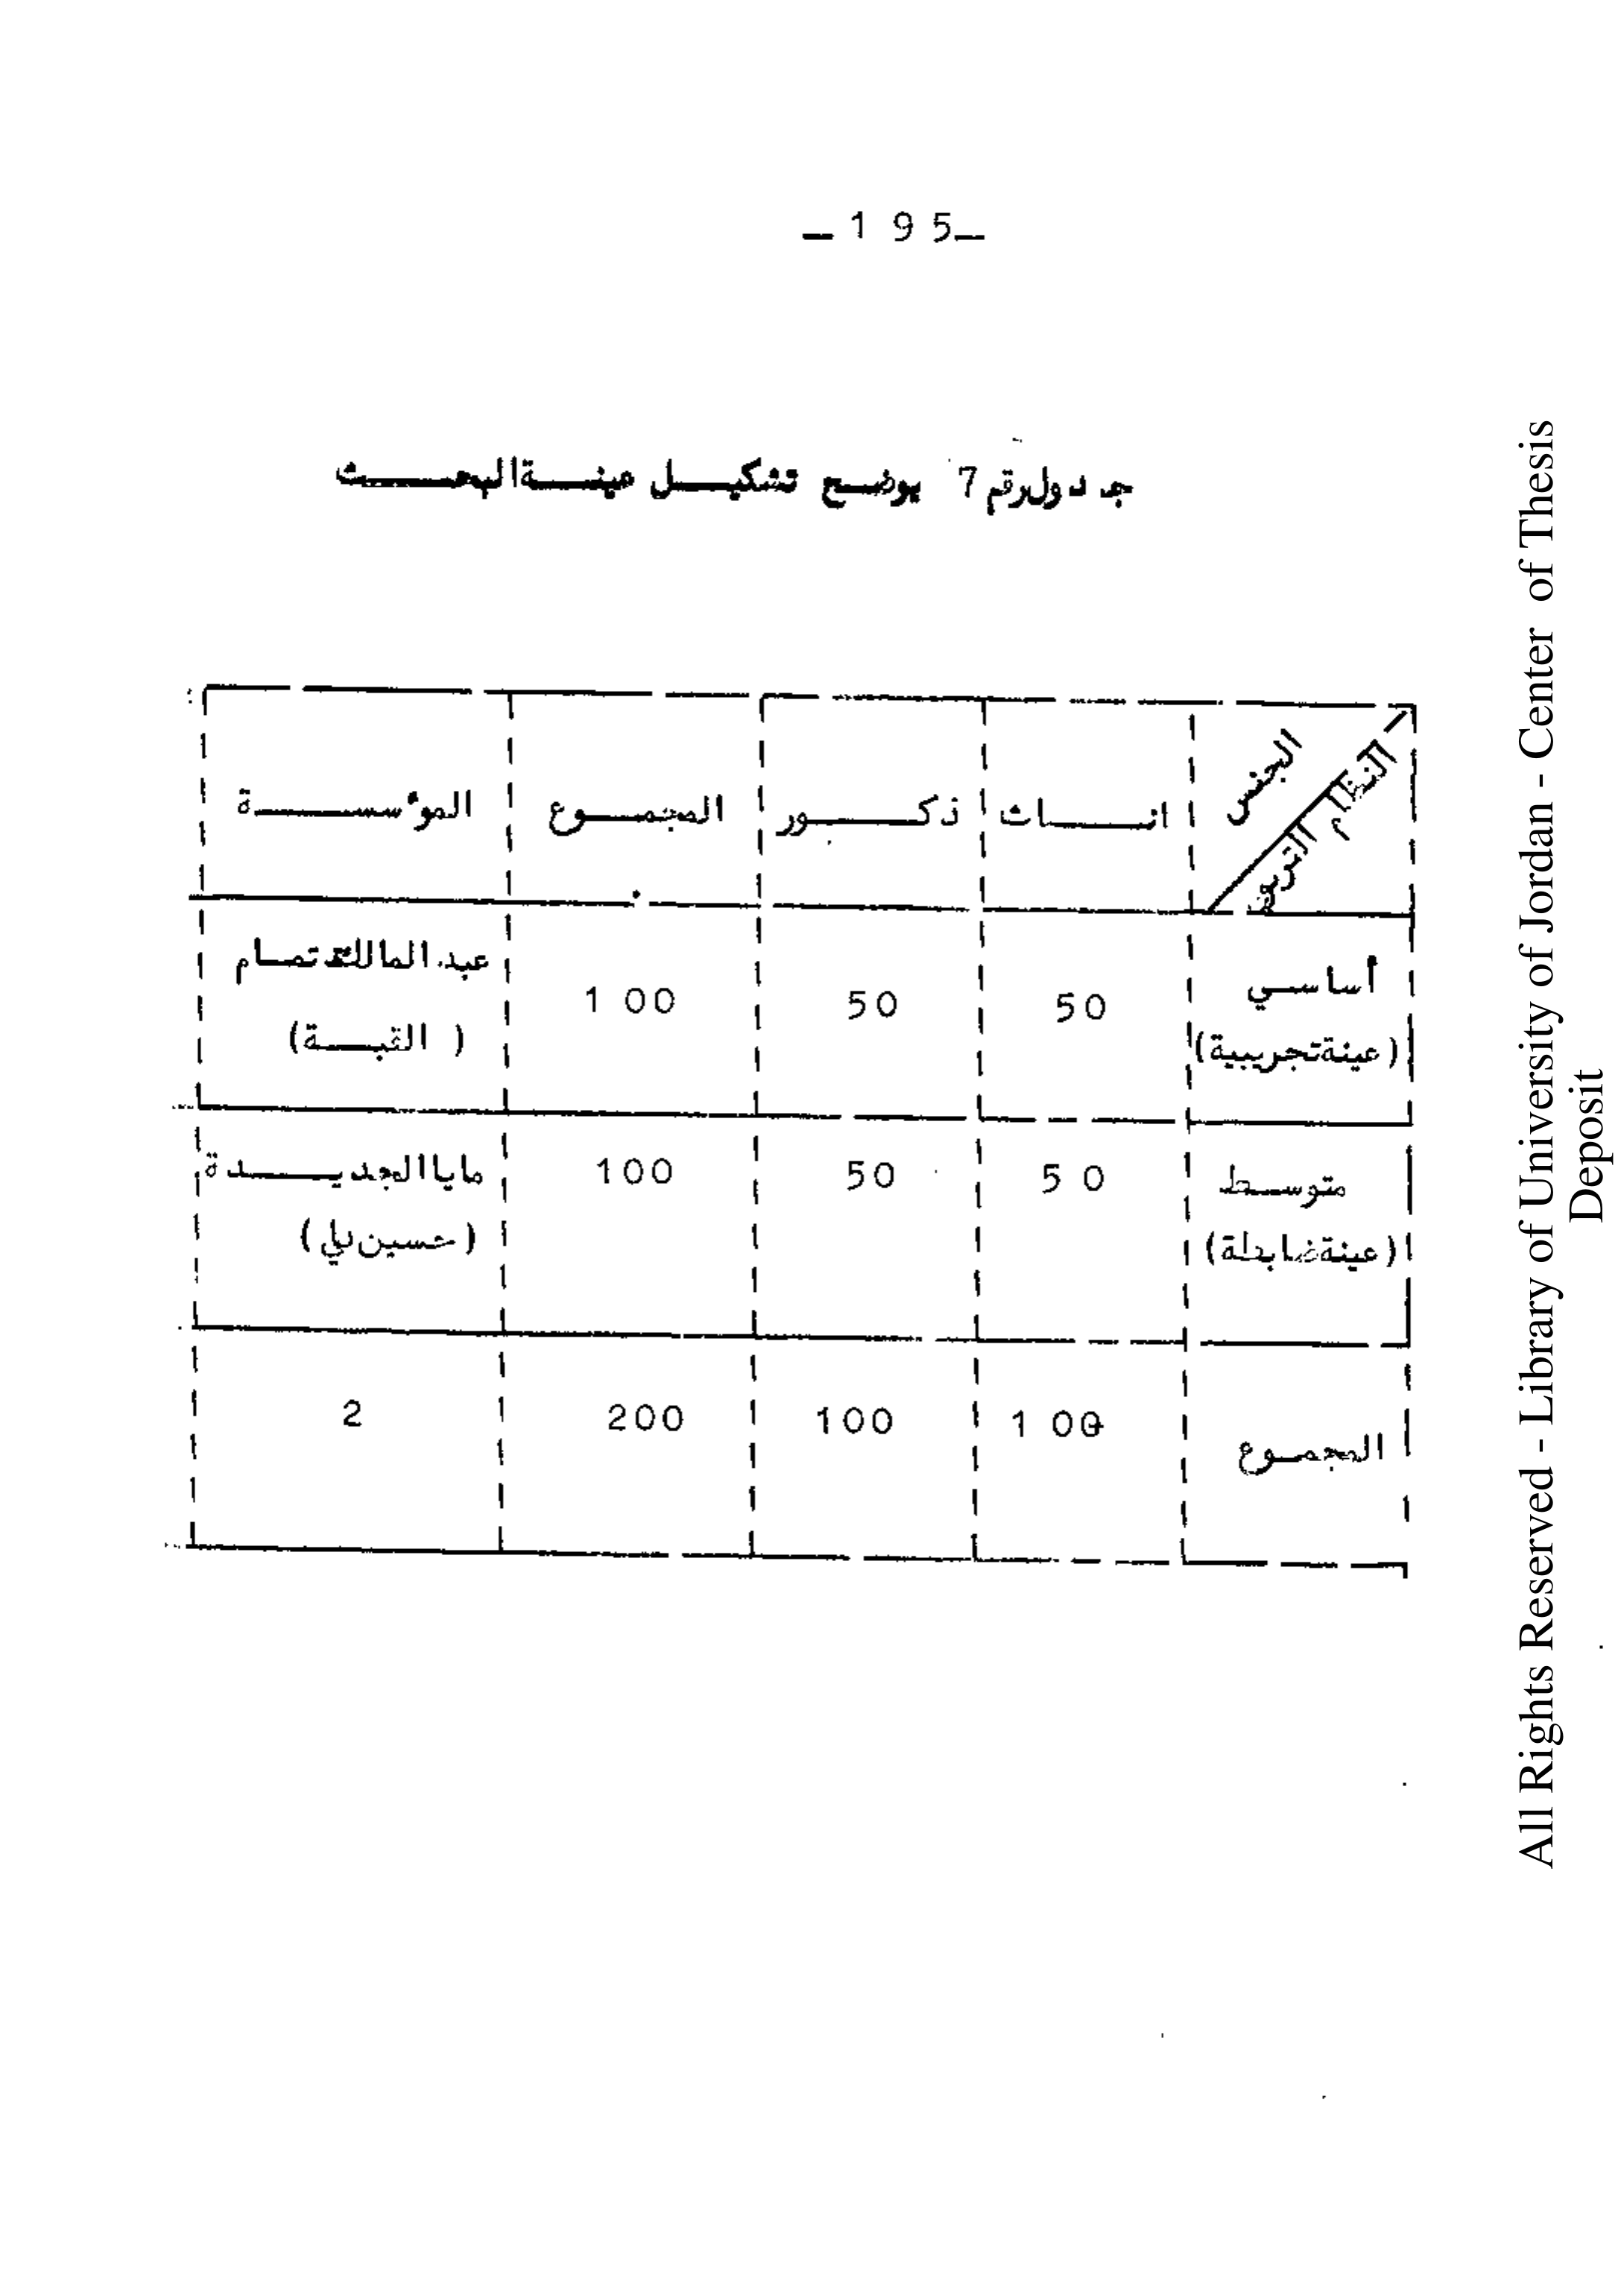 _ 1 9 5_
جدول رقم 7 يوضح تشكيل عينة البحث
الجنس
النظام التربوي
اناث
ذكور
المجموع
المؤسسة
أساسي
(عينة تجريبية)
50
50
100
عبد المالك تمام
(القبة)
متوسط
(عينة ضابطة)
50
50
100
مايا الجديدة
(حسين
المجموع
100
100
200
2
All Rights Reserved - Library of University of Jordan - Center of Thesis
Deposit